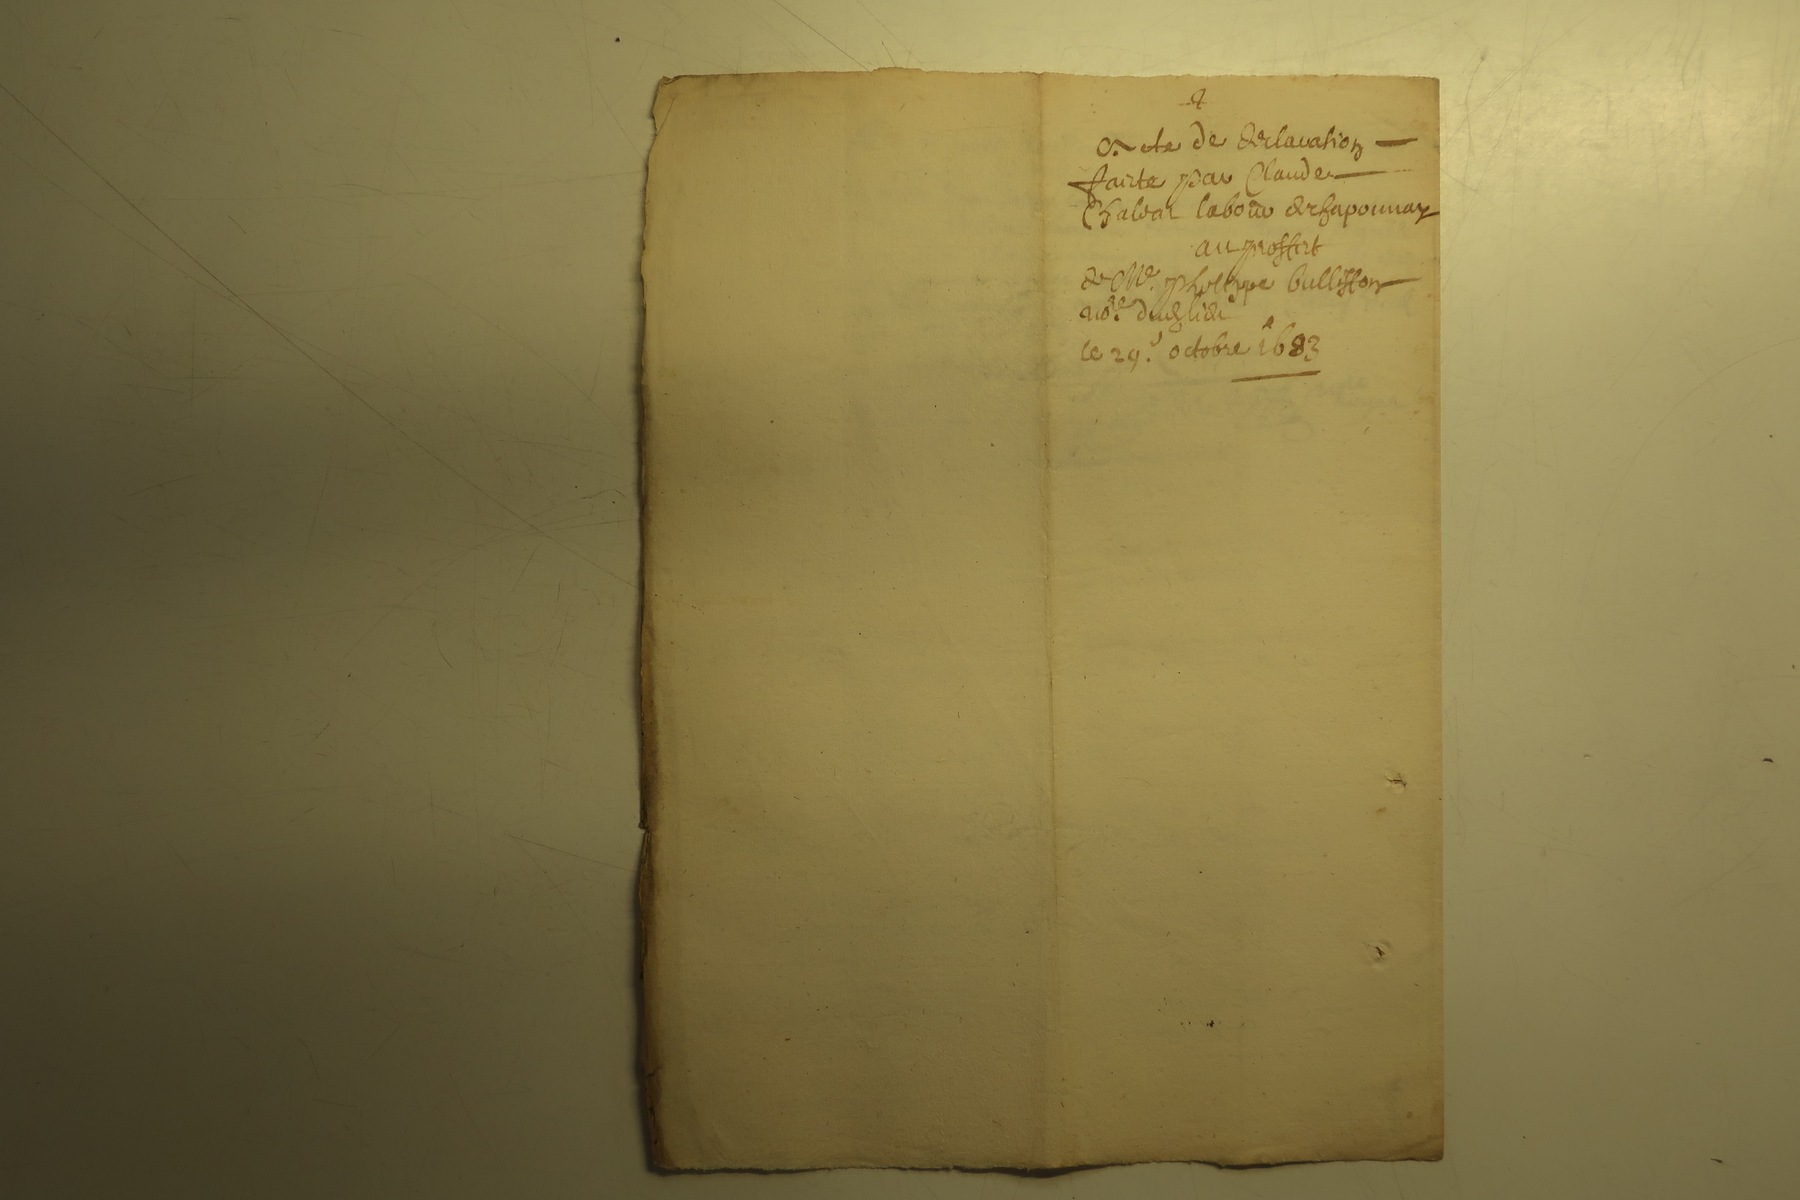 2
Acte de declaration
faicte par Claude
Chalvat labour de chaponnay
au proffit
de Me. phelippe bullisson
no.re
le 29.e octobre 1683